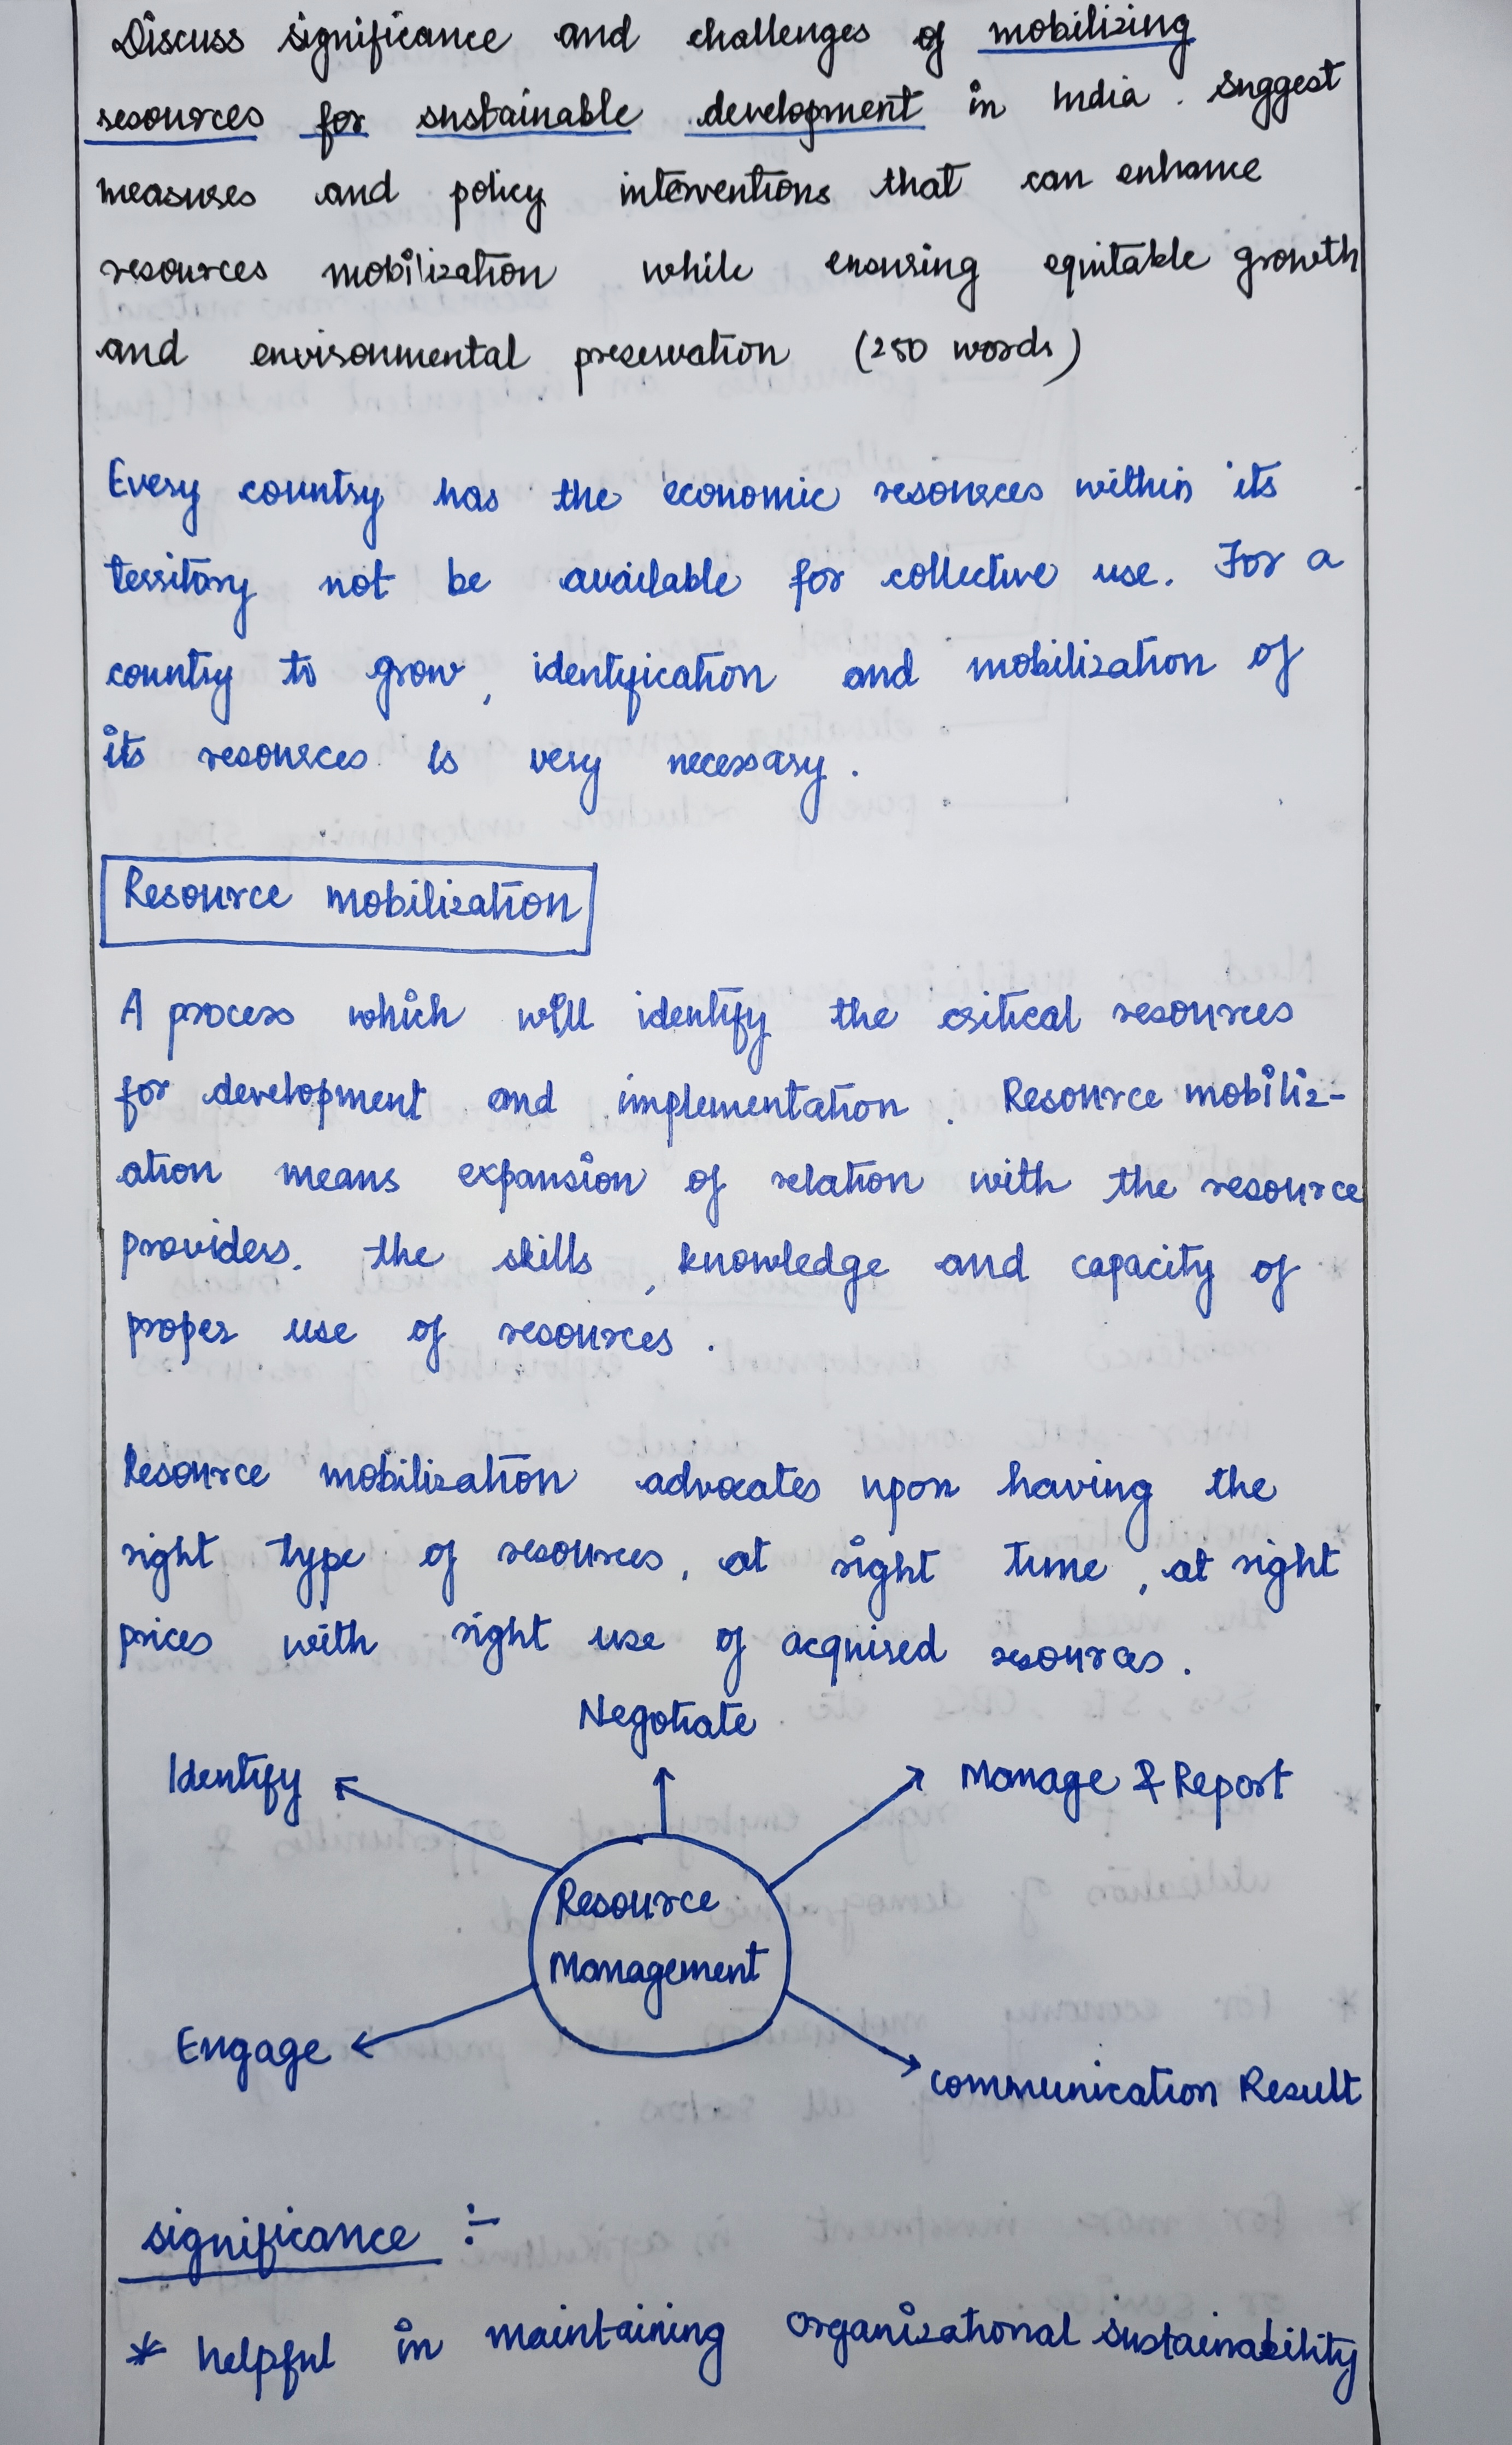 Discuss significance and challenges of mobilizing
resources for sustainable development in India. Suggest
measures and policy interventions that can enhance
resources mobilization while ensuring equitable growth
and environmental preservation (250 words)
Every country has the economic resources within its
territory not be available for collective use. For a
country to grow, identification and mobilization of
its resources is very necessary.
Resource mobilization
A process which will identify the critical resources
for development and implementation. Resource mobiliz-
ation means expansion of relation with the resource
providers. the skills, knowledge and capacity of
proper use of resources.
Resource mobilization advocates upon having the
right type of resources, at right time, at right
prices with right use of acquired resources.
Negotiate
Identify
Manage & Report
Resource
Management
Engage
Communication Result
significance :-
* helpful in maintaining organizational sustainability